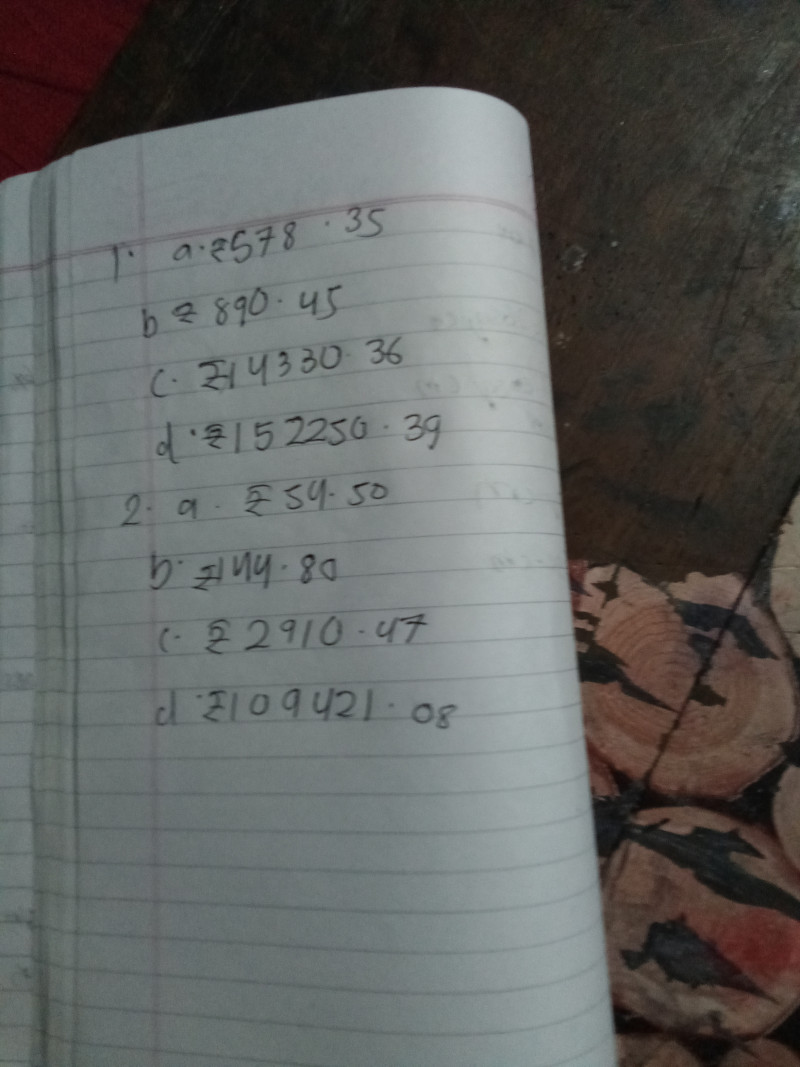 1. a. ₹578.35
b ₹ 890.45
c. ₹14330.36
d. ₹152250.39
2. a. ₹54.50
b. ₹144.80
c. ₹2910.47
d. ₹109421.08